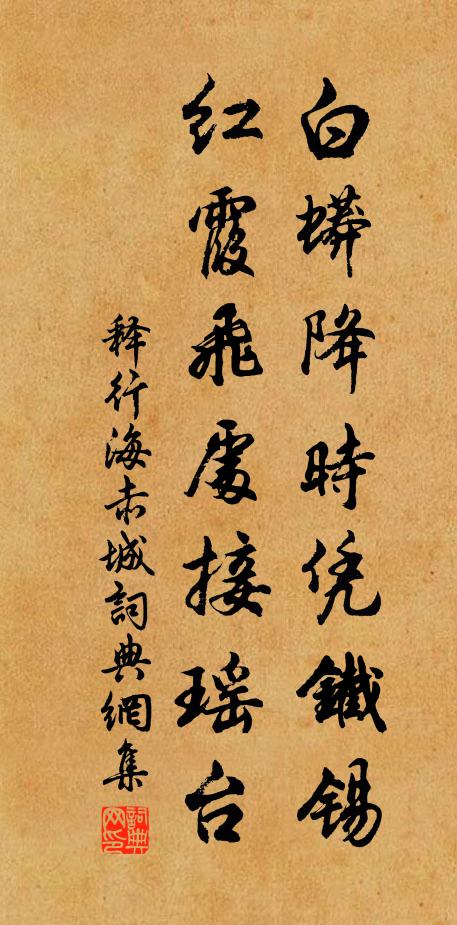 白蟒降時凭鐵錫
紅霞飛處接瑶台
释行海赤城詞典網集
詞典网印